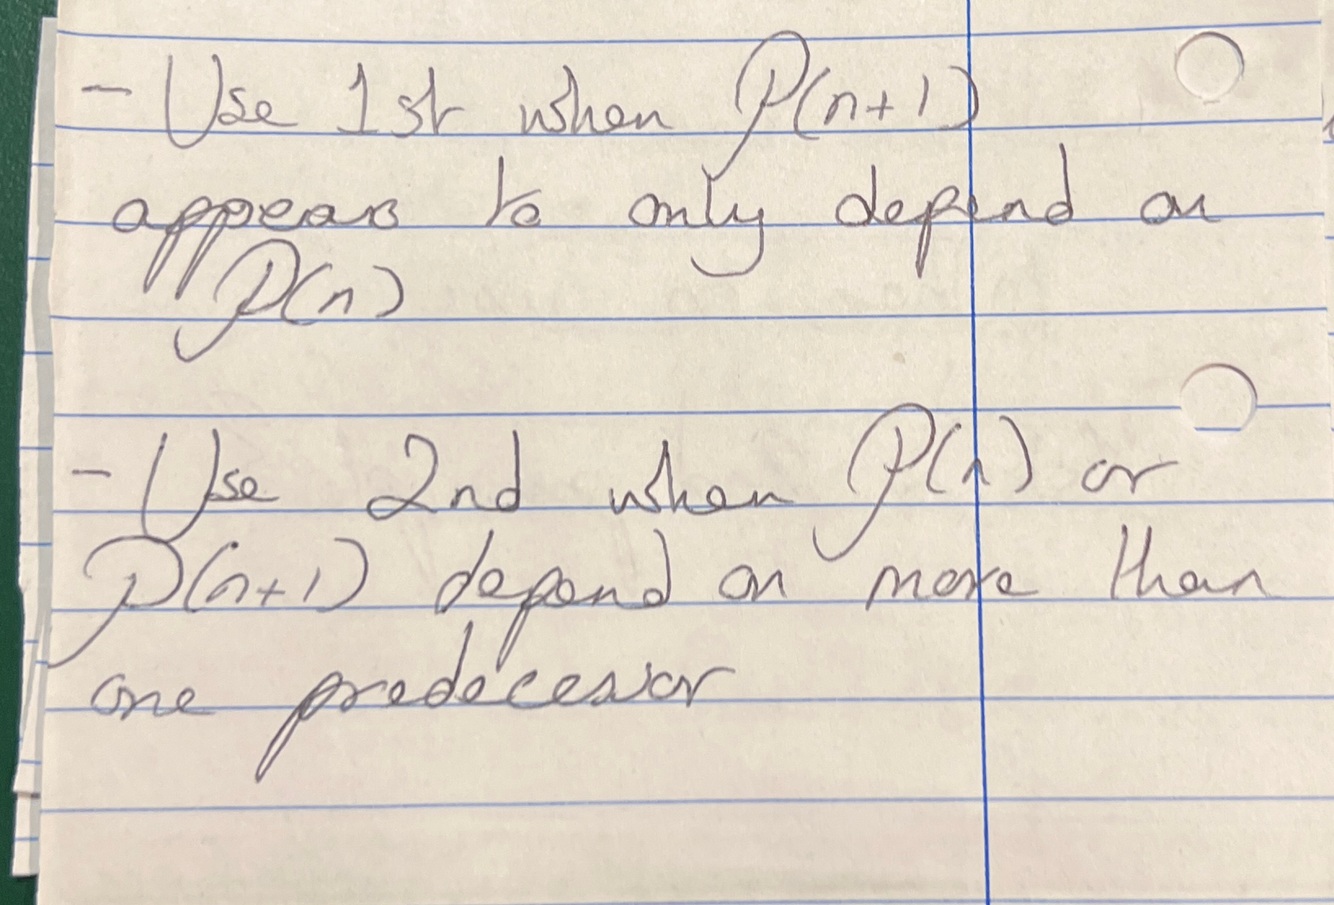 - Use 1st when P(n+1)
appears to only depend on
P(n)
- Use 2nd when P(n) or
P(n+1) depend on more than
one predecessor